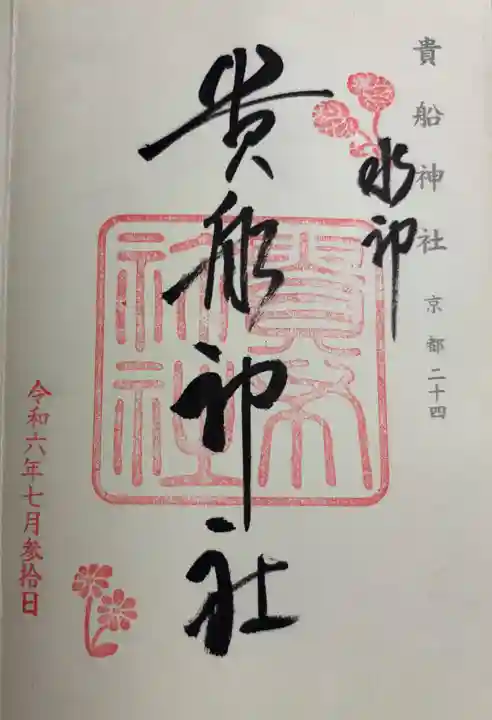 貴船神社 京都二十四
水神
貴船神社
令和六年七月参拾日